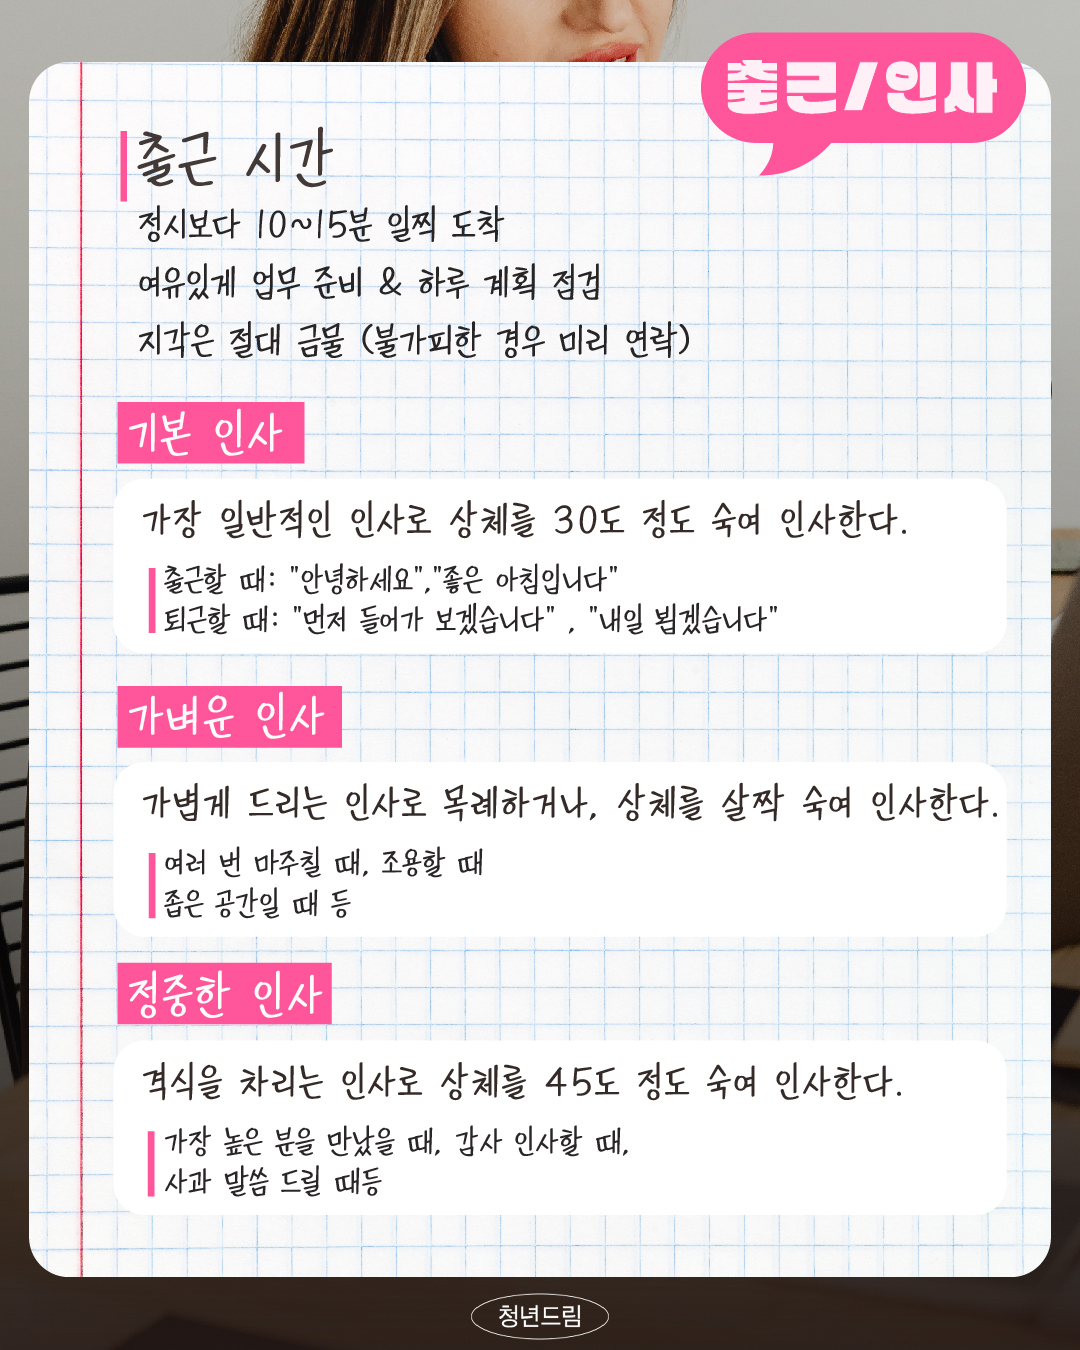 출근/인사
출근 시간
정시보다 10~15분 일찍 도착
여유있게 업무 준비 & 하루 계획 점검
지각은 절대 금물 (불가피한 경우 미리 연락)
기본 인사
가장 일반적인 인사로 상체를 30도 정도 숙여 인사한다.
출근할 때: "안녕하세요","좋은 아침입니다"
퇴근할 때: "먼저 들어가 보겠습니다" , "내일 뵙겠습니다"
가벼운 인사
가볍게 드리는 인사로 목례하거나, 상체를 살짝 숙여 인사한다.
여러 번 마주칠 때, 조용할 때
좁은 공간일 때 등
정중한 인사
격식을 차리는 인사로 상체를 45도 정도 숙여 인사한다.
가장 높은 분을 만났을 때, 감사 인사할 때,
사과 말씀 드릴 때등
청년드림